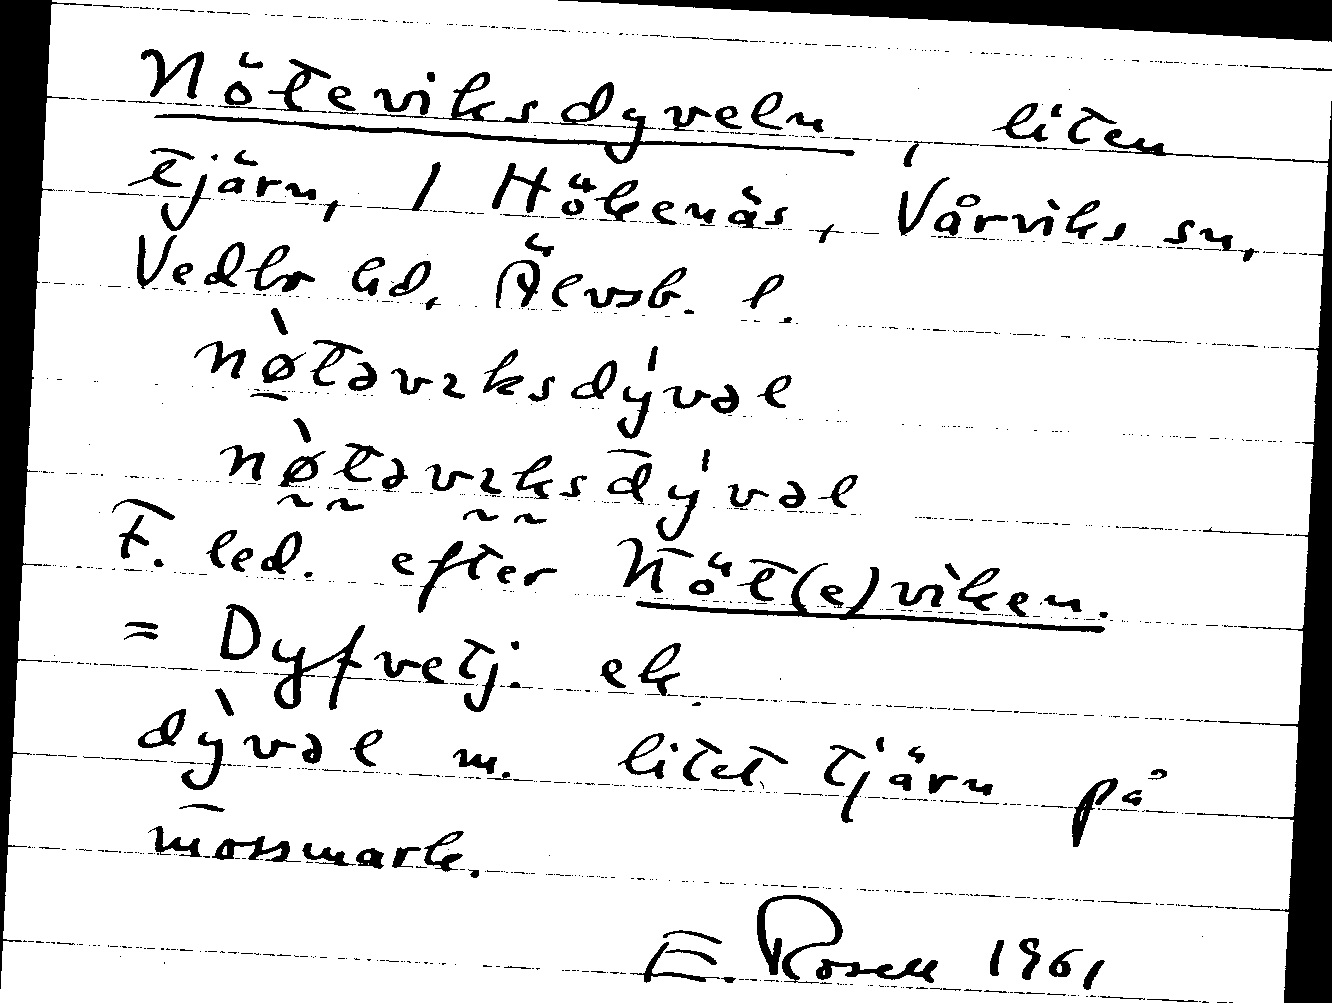 Nöteviksdyveln, liten
tjärn, 1 Hökenäs, Vårviks sn,
Vedbo hd, Älvsb. l.
nø̀təvɪksdý̀vəl
nø̀təvɪksdý̀vəl
F. led. efter Nöt(e)viken.
= Dyfvetj. ek.
dỳvəl m. litet tjärn på
mossmark.
E. Rosell 1961